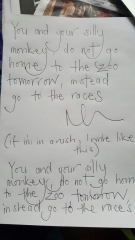 You and your silly
monkey do not go
home to the Zoo
tomorrow, instead
go to the races
(if im in a rush, I write like
this)
You and your silly
monkey, do not go home
to the Zoo tomorrow
instead go to the races